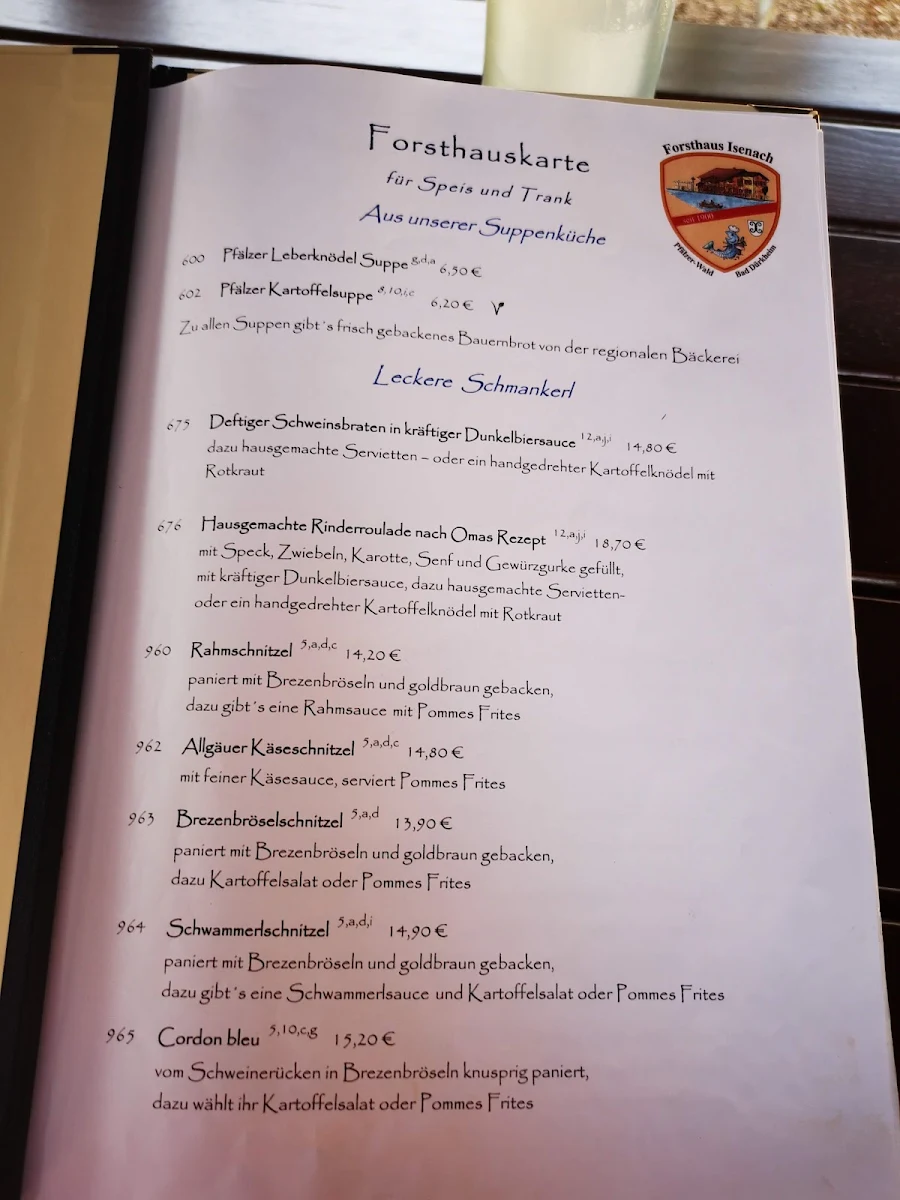 Forsthauskarte
für Speis und Trank
Forsthaus Isenach
seit 1900
Pfälzer-Wald Bad Dürkheim
Aus unserer Suppenküche
600 Pfälzer Leberknödel Suppe g,d,a 6,50 €
602 Pfälzer Kartoffelsuppe 8,10,i,c 6,20 € V
Zu allen Suppen gibt´s frisch gebackenes Bauernbrot von der regionalen Bäckerei
Leckere Schmankerl
675 Deftiger Schweinsbraten in kräftiger Dunkelbiersauce 12,a,j,i 14,80 €
dazu hausgemachte Servietten – oder ein handgedrehter Kartoffelknödel mit
Rotkraut
676 Hausgemachte Rinderroulade nach Omas Rezept 12,a,j,i 18,70 €
mit Speck, Zwiebeln, Karotte, Senf und Gewürzgurke gefüllt,
mit kräftiger Dunkelbiersauce, dazu hausgemachte Servietten-
oder ein handgedrehter Kartoffelknödel mit Rotkraut
960 Rahmschnitzel 5,a,d,c 14,20 €
paniert mit Brezenbröseln und goldbraun gebacken,
dazu gibt´s eine Rahmsauce mit Pommes Frites
962 Allgäuer Käseschnitzel 5,a,d,c 14,80 €
mit feiner Käsesauce, serviert Pommes Frites
963 Brezenbröselschnitzel 5,a,d 13,90 €
paniert mit Brezenbröseln und goldbraun gebacken,
dazu Kartoffelsalat oder Pommes Frites
964 Schwammerlschnitzel 5,a,d,i 14,90 €
paniert mit Brezenbröseln und goldbraun gebacken,
dazu gibt´s eine Schwammerlsauce und Kartoffelsalat oder Pommes Frites
965 Cordon bleu 5,10,c,g 15,20 €
vom Schweinerücken in Brezenbröseln knusprig paniert,
dazu wählt ihr Kartoffelsalat oder Pommes Frites